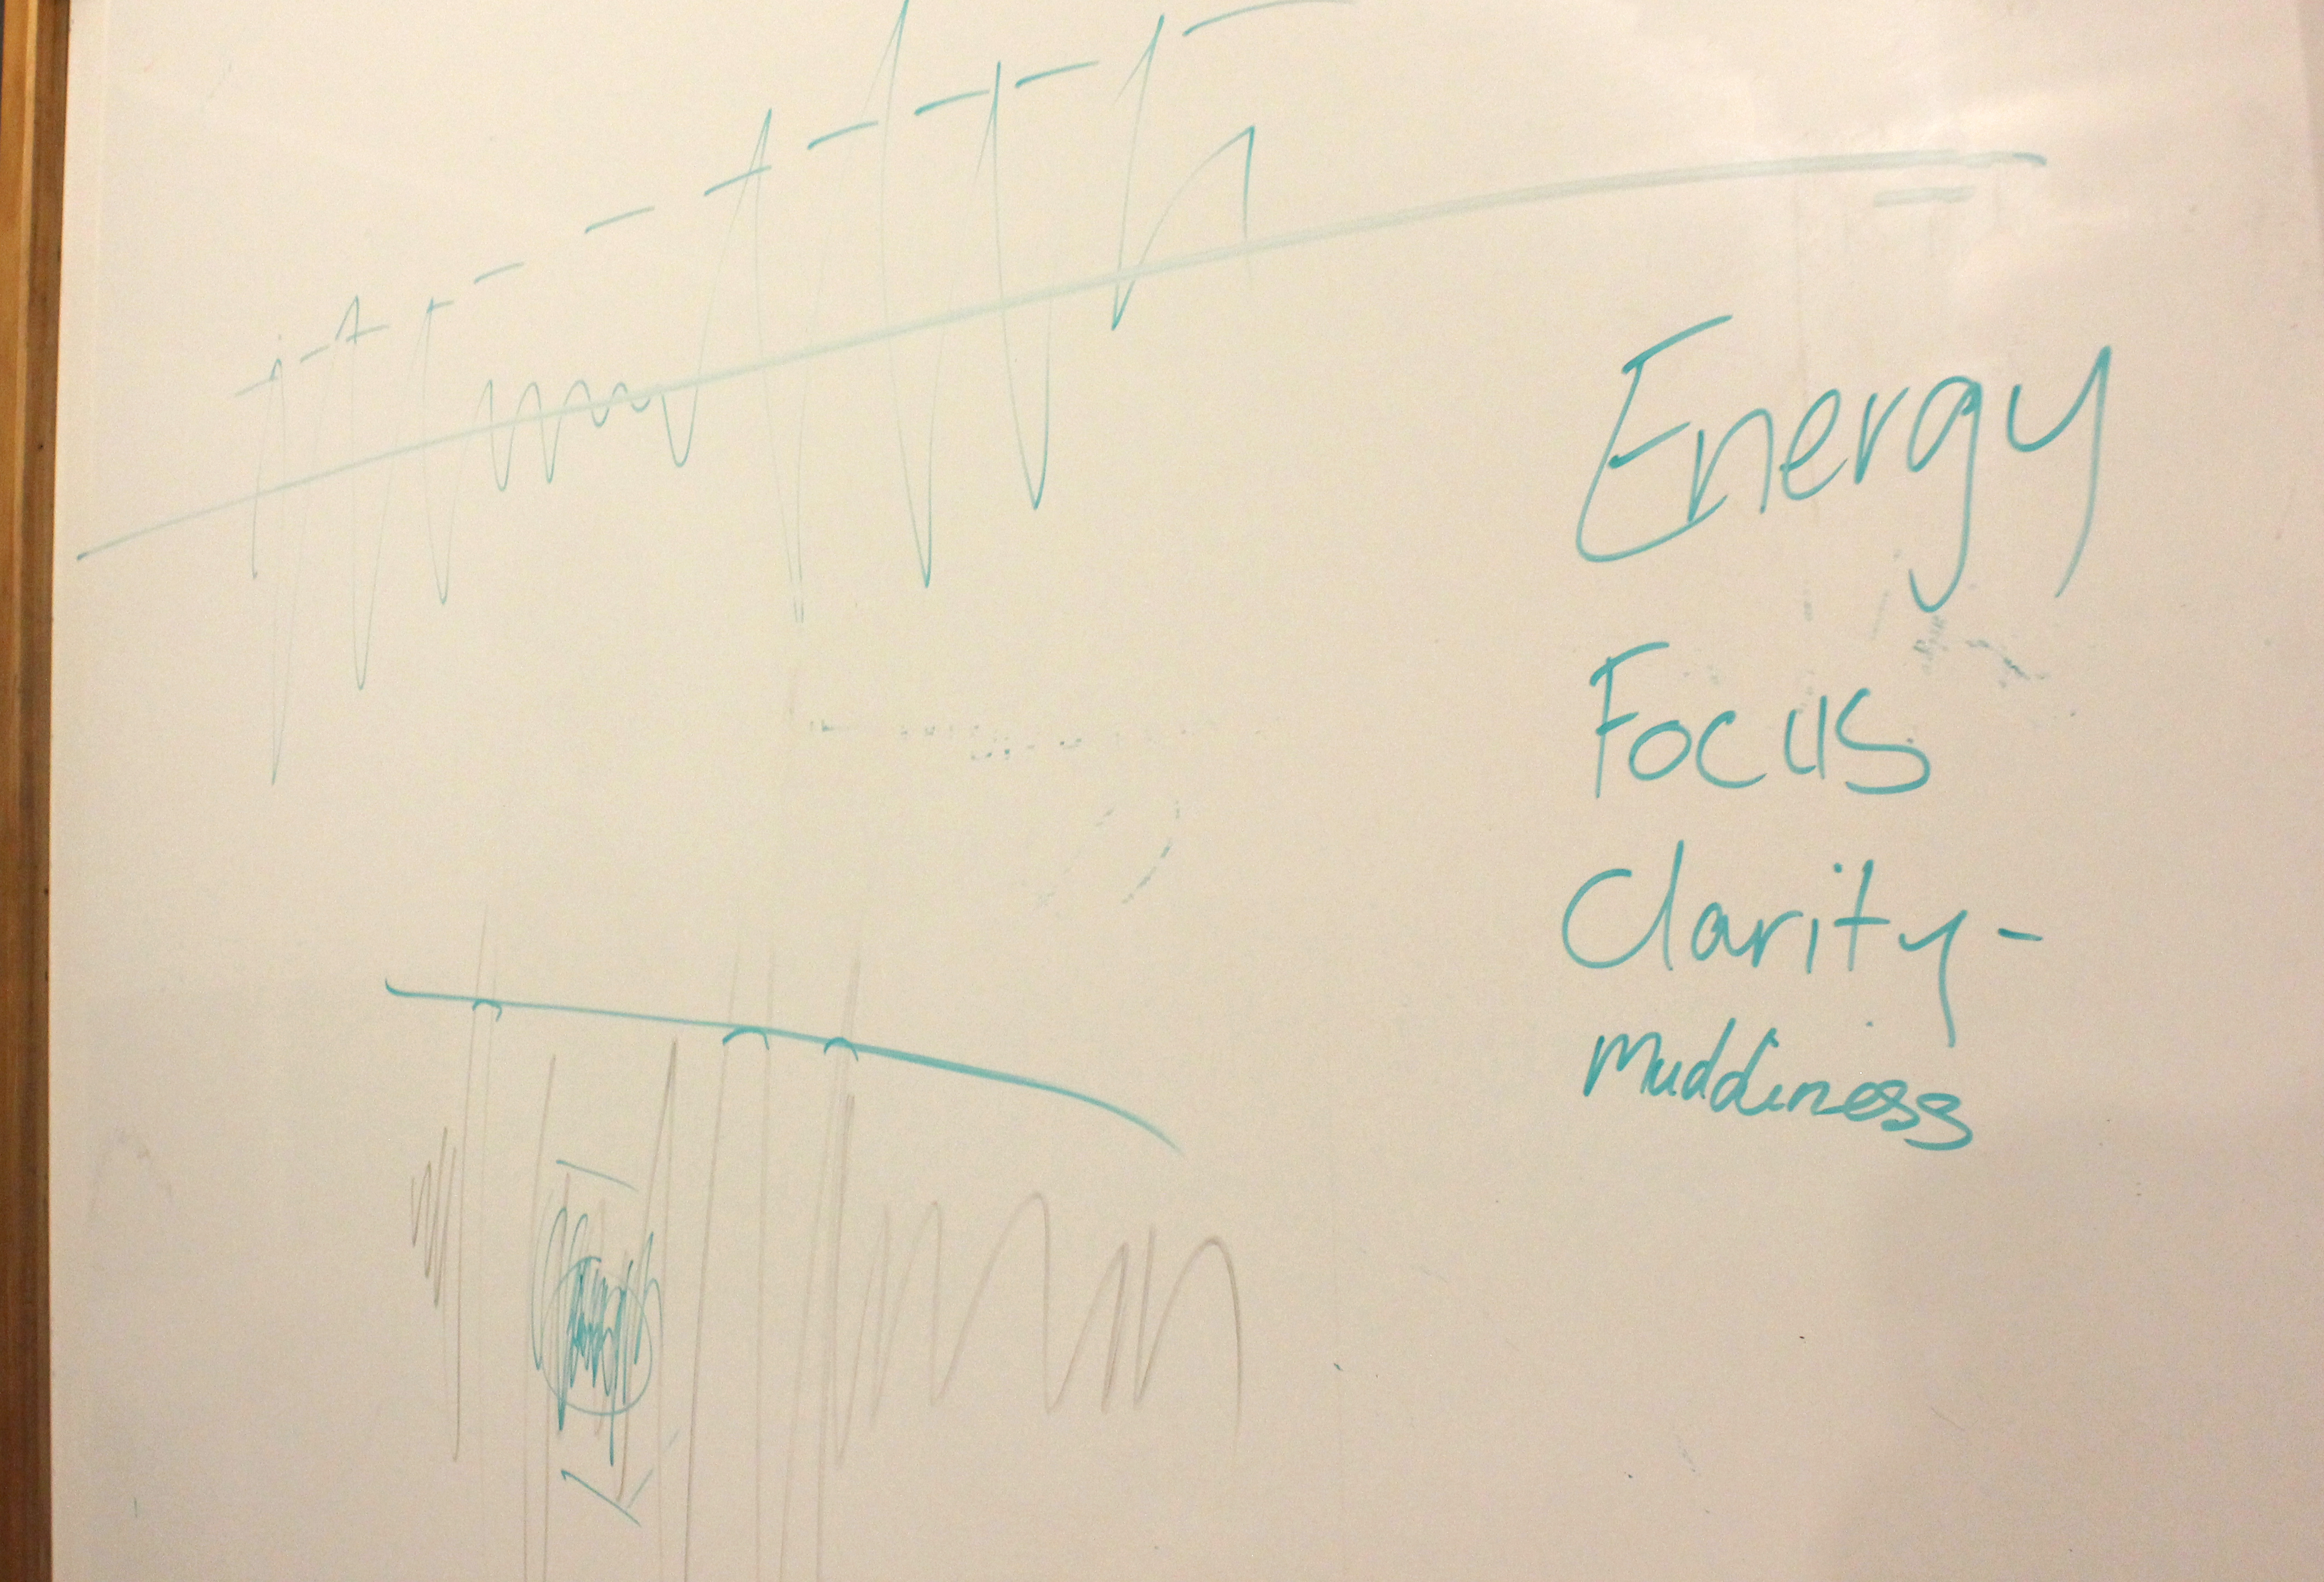 Energy
Focus
Clarity -
Muddiness